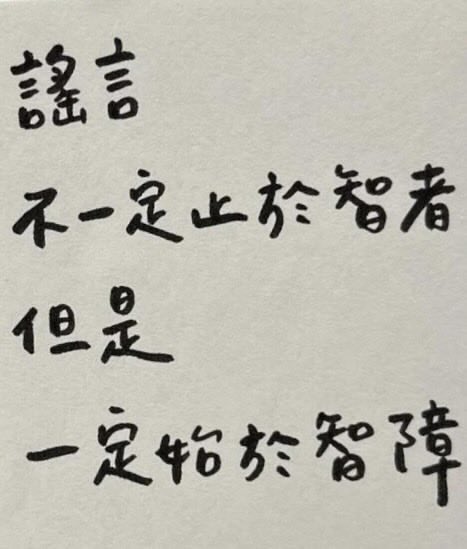 謠言
不一定止於智者
但是
一定始於智障